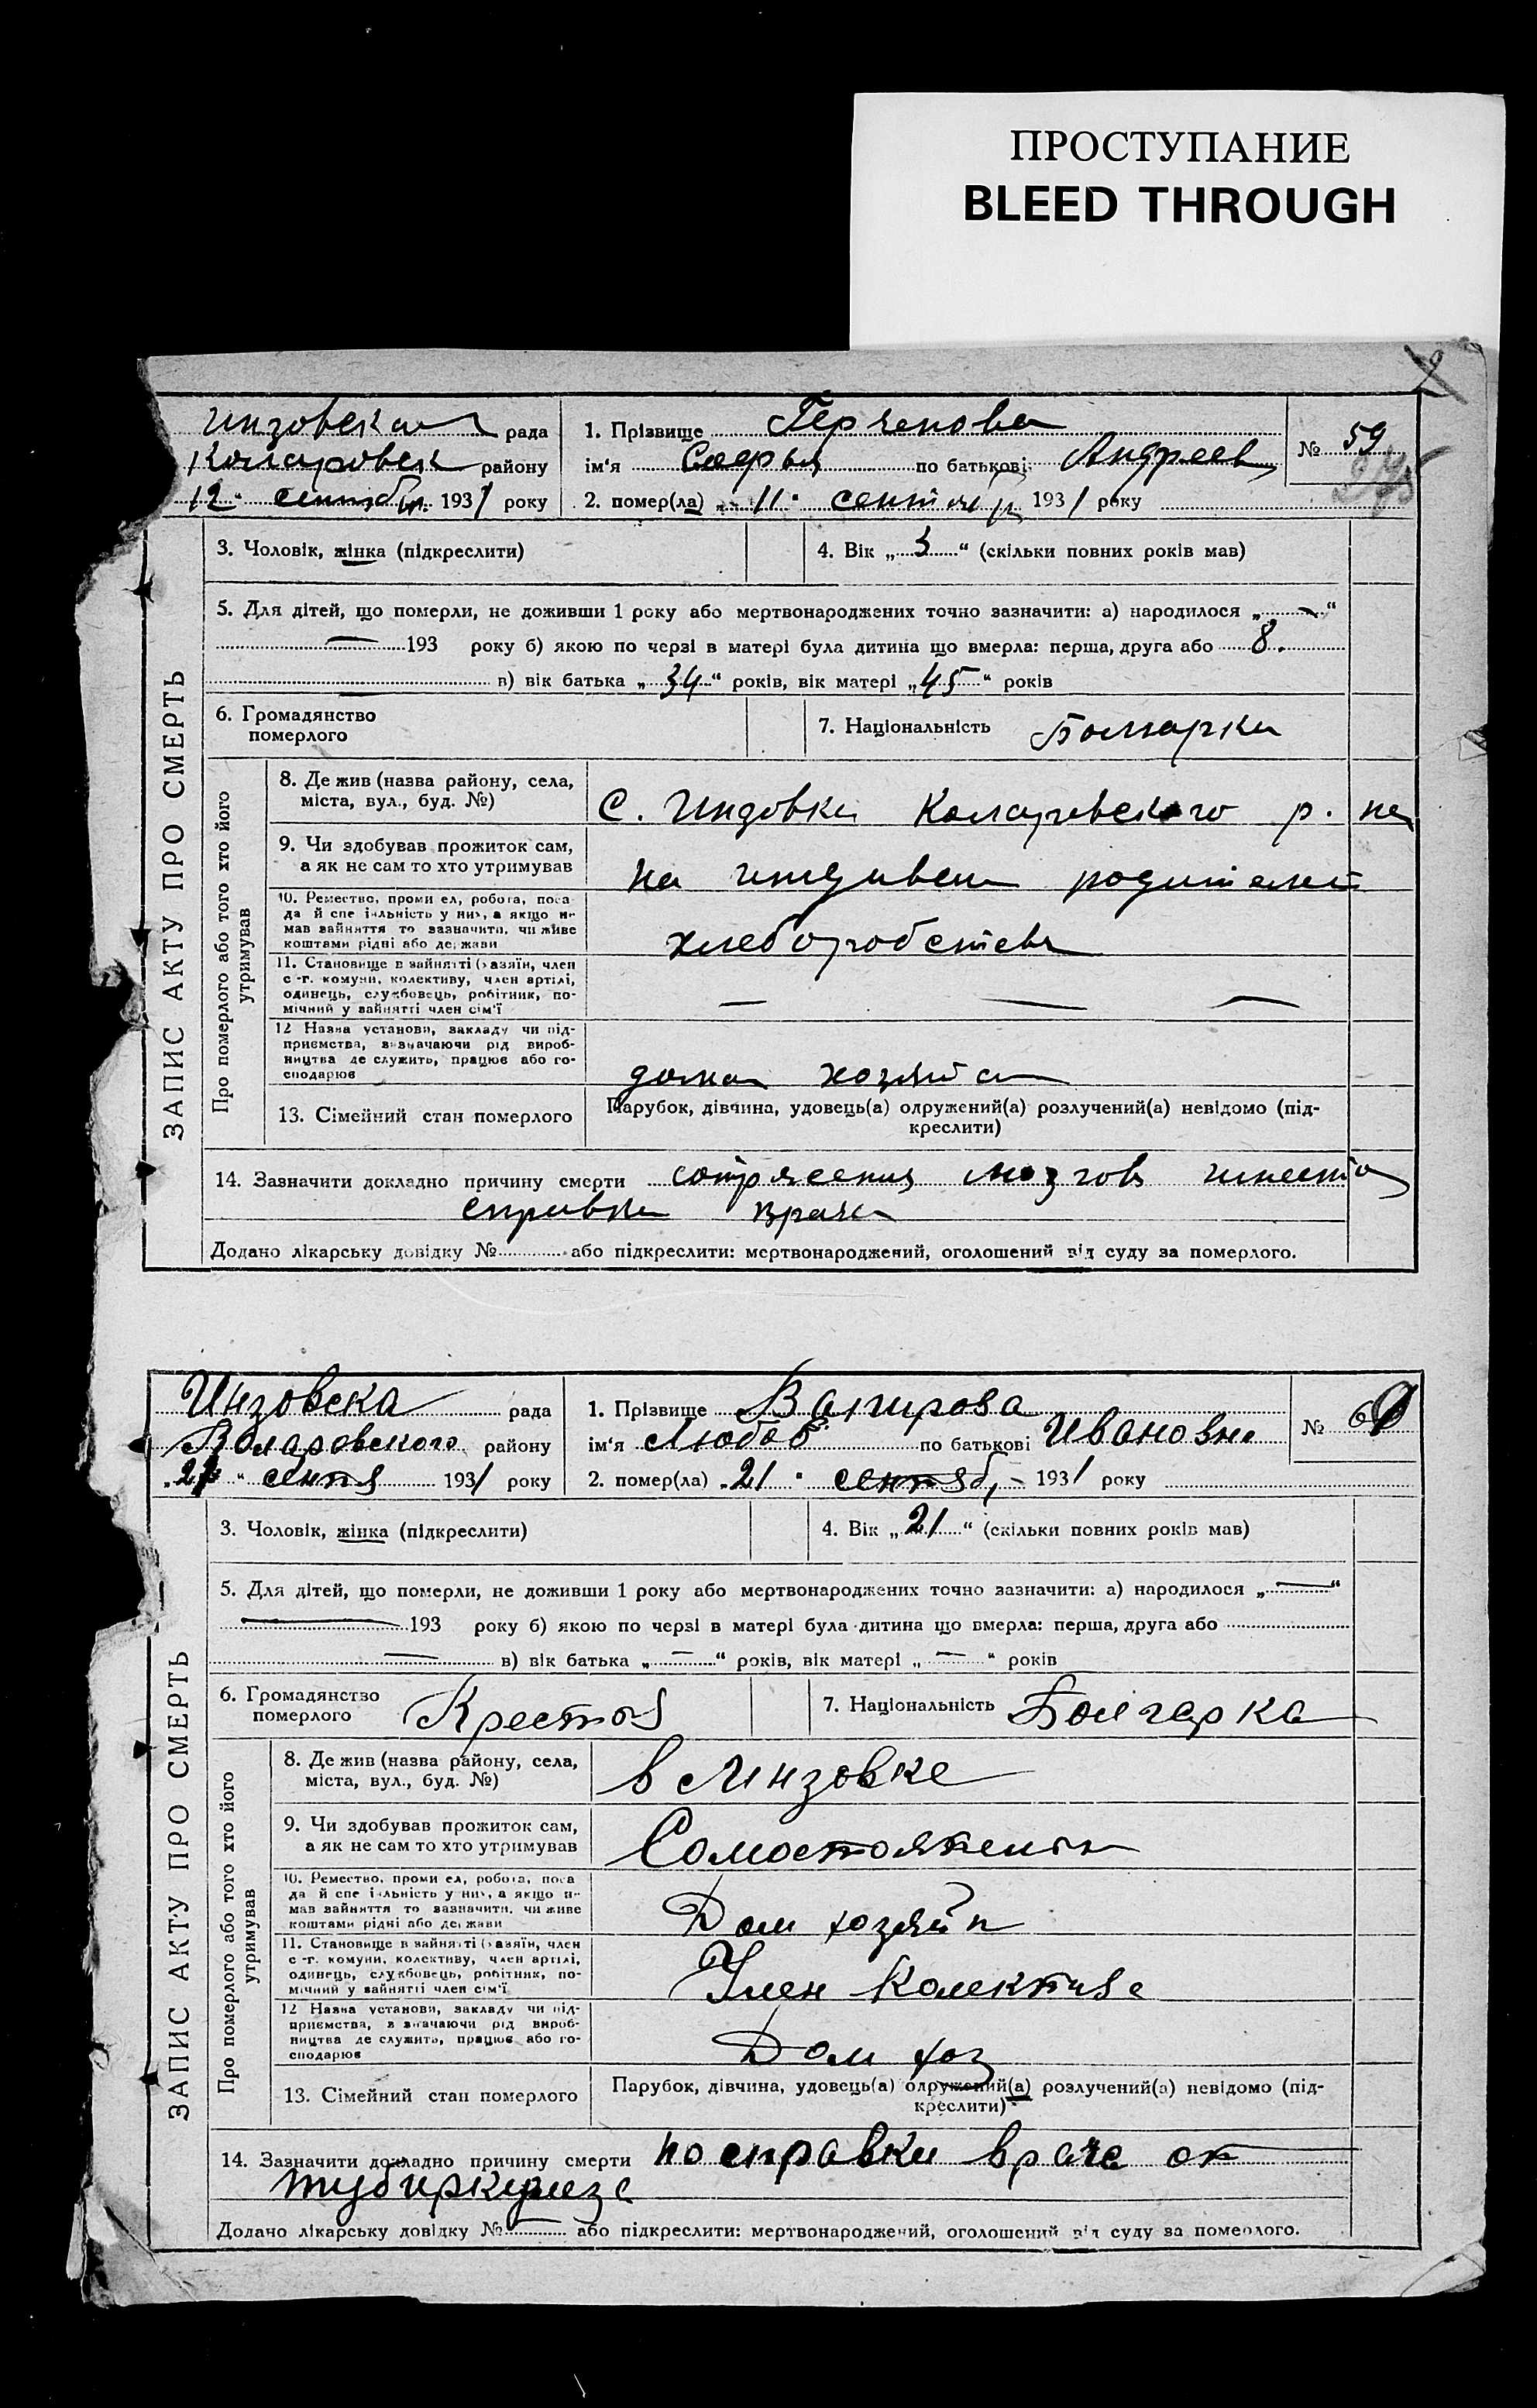 ПРОСТУПАНИЕ
BLEED THROUGH
Инзовская рада
Коларовск району
12 " сентября 1931 року
1. Прізвище Герченова
ім'я Софья по батькові Андреев
№ 59
2. помер(ла) " 11 " сентяб 1931 року
3. Чоловік, жінка (підкреслити)
4. Вік „ 3 “ (скільки повних років мав)
5. Для дітей, що померли, не доживши 1 року або мертвонароджених точно зазначити: а) народилося „ — “
— 193 року б) якою по черзі в матері була дитина що вмерла: перша, друга або 8.
— в) вік батька „ 34 “ років, вік матері „ 45 “ років
6. Громадянство
померлого
7. Національність Болгарка
ЗАПИС АКТУ ПРО СМЕРТЬ
Про померлого або того хто його
утримував
8. Де жив (назва району, села,
міста, вул., буд. №)
С. Инзовка Коларовского р. на
9. Чи здобував прожиток сам,
а як не сам то хто утримував
на иждивен родителей
10. Ремество, проми ел, робота, поса
да й спе іальність у них, а якщо не
мав зайняття то зазначити, чи живе
коштами рідні або держави
хлеборобства
11. Становище в зайнятті (хазяїн, член
с.-г. комуни, колективу, член артілі,
одинець, службовець, робітник, по-
мічний у зайнятті член сім'ї
— — —
12 Назва установи, закладу чи під-
приємства, визначаючи рід вироб-
ництва де служить, працює або го-
сподарює
домаш хозяйст
13. Сімейний стан померлого
Парубок, дівчина, удовець(а) одружений(а) розлучений(а) невідомо (під-
креслити)
14. Зазначити докладно причину смерти сотрясения мозгов имеется
справка врача
Додано лікарську довідку № або підкреслити: мертвонароджений, оголошений від суду за померлого.
Инзовска рада
Коларовского району
„ 21 “ сентя 1931 року
1. Прізвище
ім'я Любов по батькові Ивановна
№ 60
2. помер(ла) „ 21 " сентяб, 1931 року
3. Чоловік, жінка (підкреслити)
4. Вік „ 21 “ (скільки повних років мав)
5. Для дітей, що померли, не доживши 1 року або мертвонароджених точно зазначити: а) народилося „ — “
— 193 року б) якою по черзі в матері була дитина що вмерла: перша, друга або
— в) вік батька „ — “ років, вік матері „ — “ років
6. Громадянство
померлого
7. Національність Болгарка
ЗАПИС АКТУ ПРО СМЕРТЬ
Про померлого або того хто його
утримував
8. Де жив (назва району, села,
міста, вул., буд. №)
в Инзовке
9. Чи здобував прожиток сам,
а як не сам то хто утримував
10. Ремество, проми ел, робота, поса
да й спе іальність у них, а якщо не
мав зайняття то зазначити, чи живе
коштами рідні або держави
Дом хозяйк
11. Становище в зайнятті (хазяїн, член
с.-г. комуни, колективу, член артілі,
одинець, службовець, робітник, по-
мічний у зайнятті член сім'ї
Член колектива
12 Назва установи, закладу чи під-
приємства, визначаючи рід вироб-
ництва де служить, працює або го-
сподарює
Дом хоз
13. Сімейний стан померлого
Парубок, дівчина, удовець(а) одружений(а) розлучений(а) невідомо (під-
креслити)
14. Зазначити докладно причину смерти по справки врача от
тубиркулеза
Додано лікарську довідку № або підкреслити: мертвонароджений, оголошений від суду за померлого.